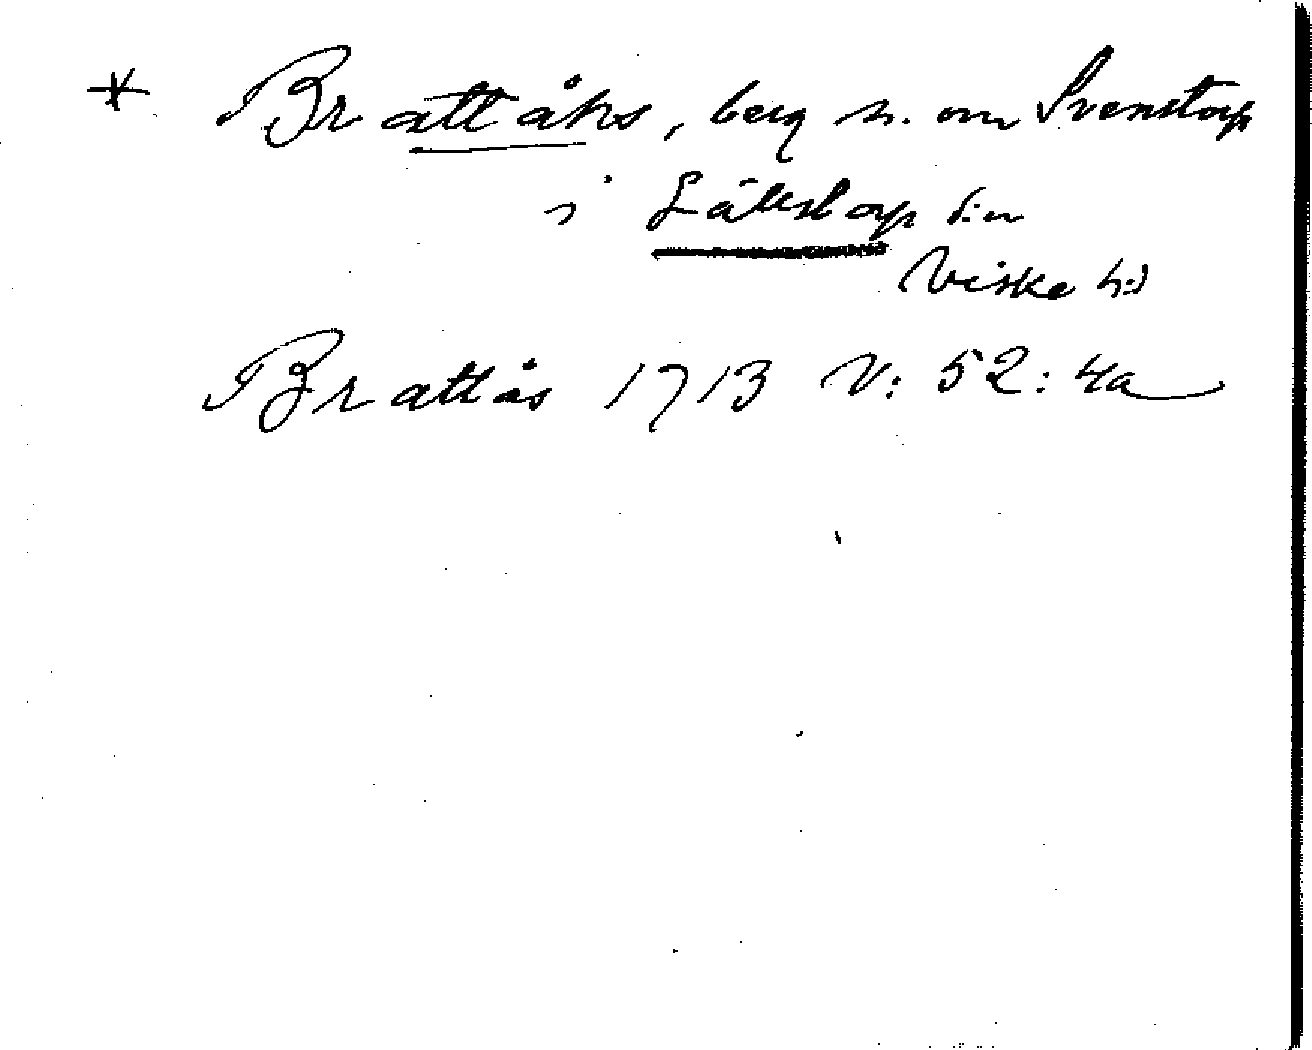 * Brattåks, berg n. om Svenstorp
i Sällstorp s:n
Viske h:d
Brattås 1713 V: 52: 4a